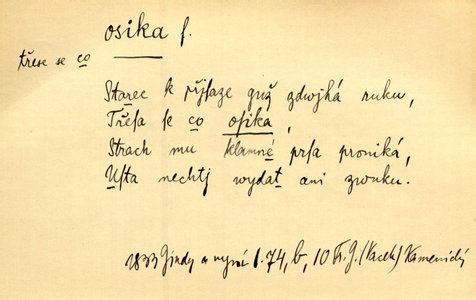 osika f.
třese se co
Starec k přjsaze guž zdwjhá ruku,
Třesa se co osika,
Strach mu klamné prsa proniká,
Usta nechtj wydat ani zwuku.
1833 Gindy a nynj 1.74, b, 10 Fr. G. (Vacek) Kamenický